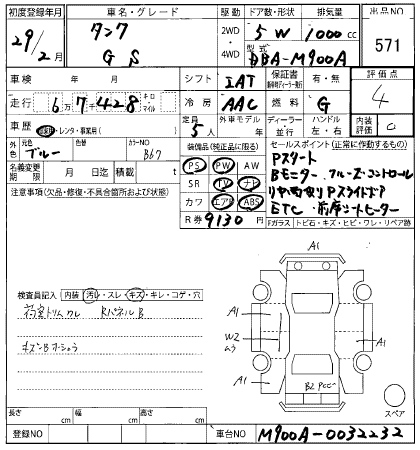 初度登録年月 車名・グレード 駆動 ドア数・形状 排気量 出品NO
29/2月 タンク GS 2WD・4WD 5W 1000cc 571
型式 DBA-M900A
車検 年 月 シフト IAT 保証書 有・無 評価点 4
走行 6万7千428 キロ・マイル 冷房 AAC 燃料 G
車歴 自家用・レンタ・事業用( ) 定員 5人 外車モデル 年 ディーラー・並行 ハンドル 左・右 内装評価 C
外色 元色 ブルー 色替 カラーNO B67 装備品(純正品に限る) セールスポイント(正常に作動するもの)
名義変更期限 月 日迄 積載 t PS PW AW
Pスタート
注意事項(欠品・修復・不具合箇所および状態) SR TV ナビ
Bモニター クルーズコントロール
カワ エアB ABS
リヤ両取りPスライドドア
R券 9130円
ETC 前席シートヒーター
Fガラス トビ石・キズ・ヒビ・ワレ・リペア跡
A1
検査員記入 内装 汚れ・スレ・キズ・キレ・コゲ・穴
荷室トリムワレ RパネルB
A1
W2
ムラ
A1
キズ・Bオーショウ
A1
B2 Pcc
長さ cm 幅 cm 高さ cm スペア
登録NO 車台NO M900A-0032232